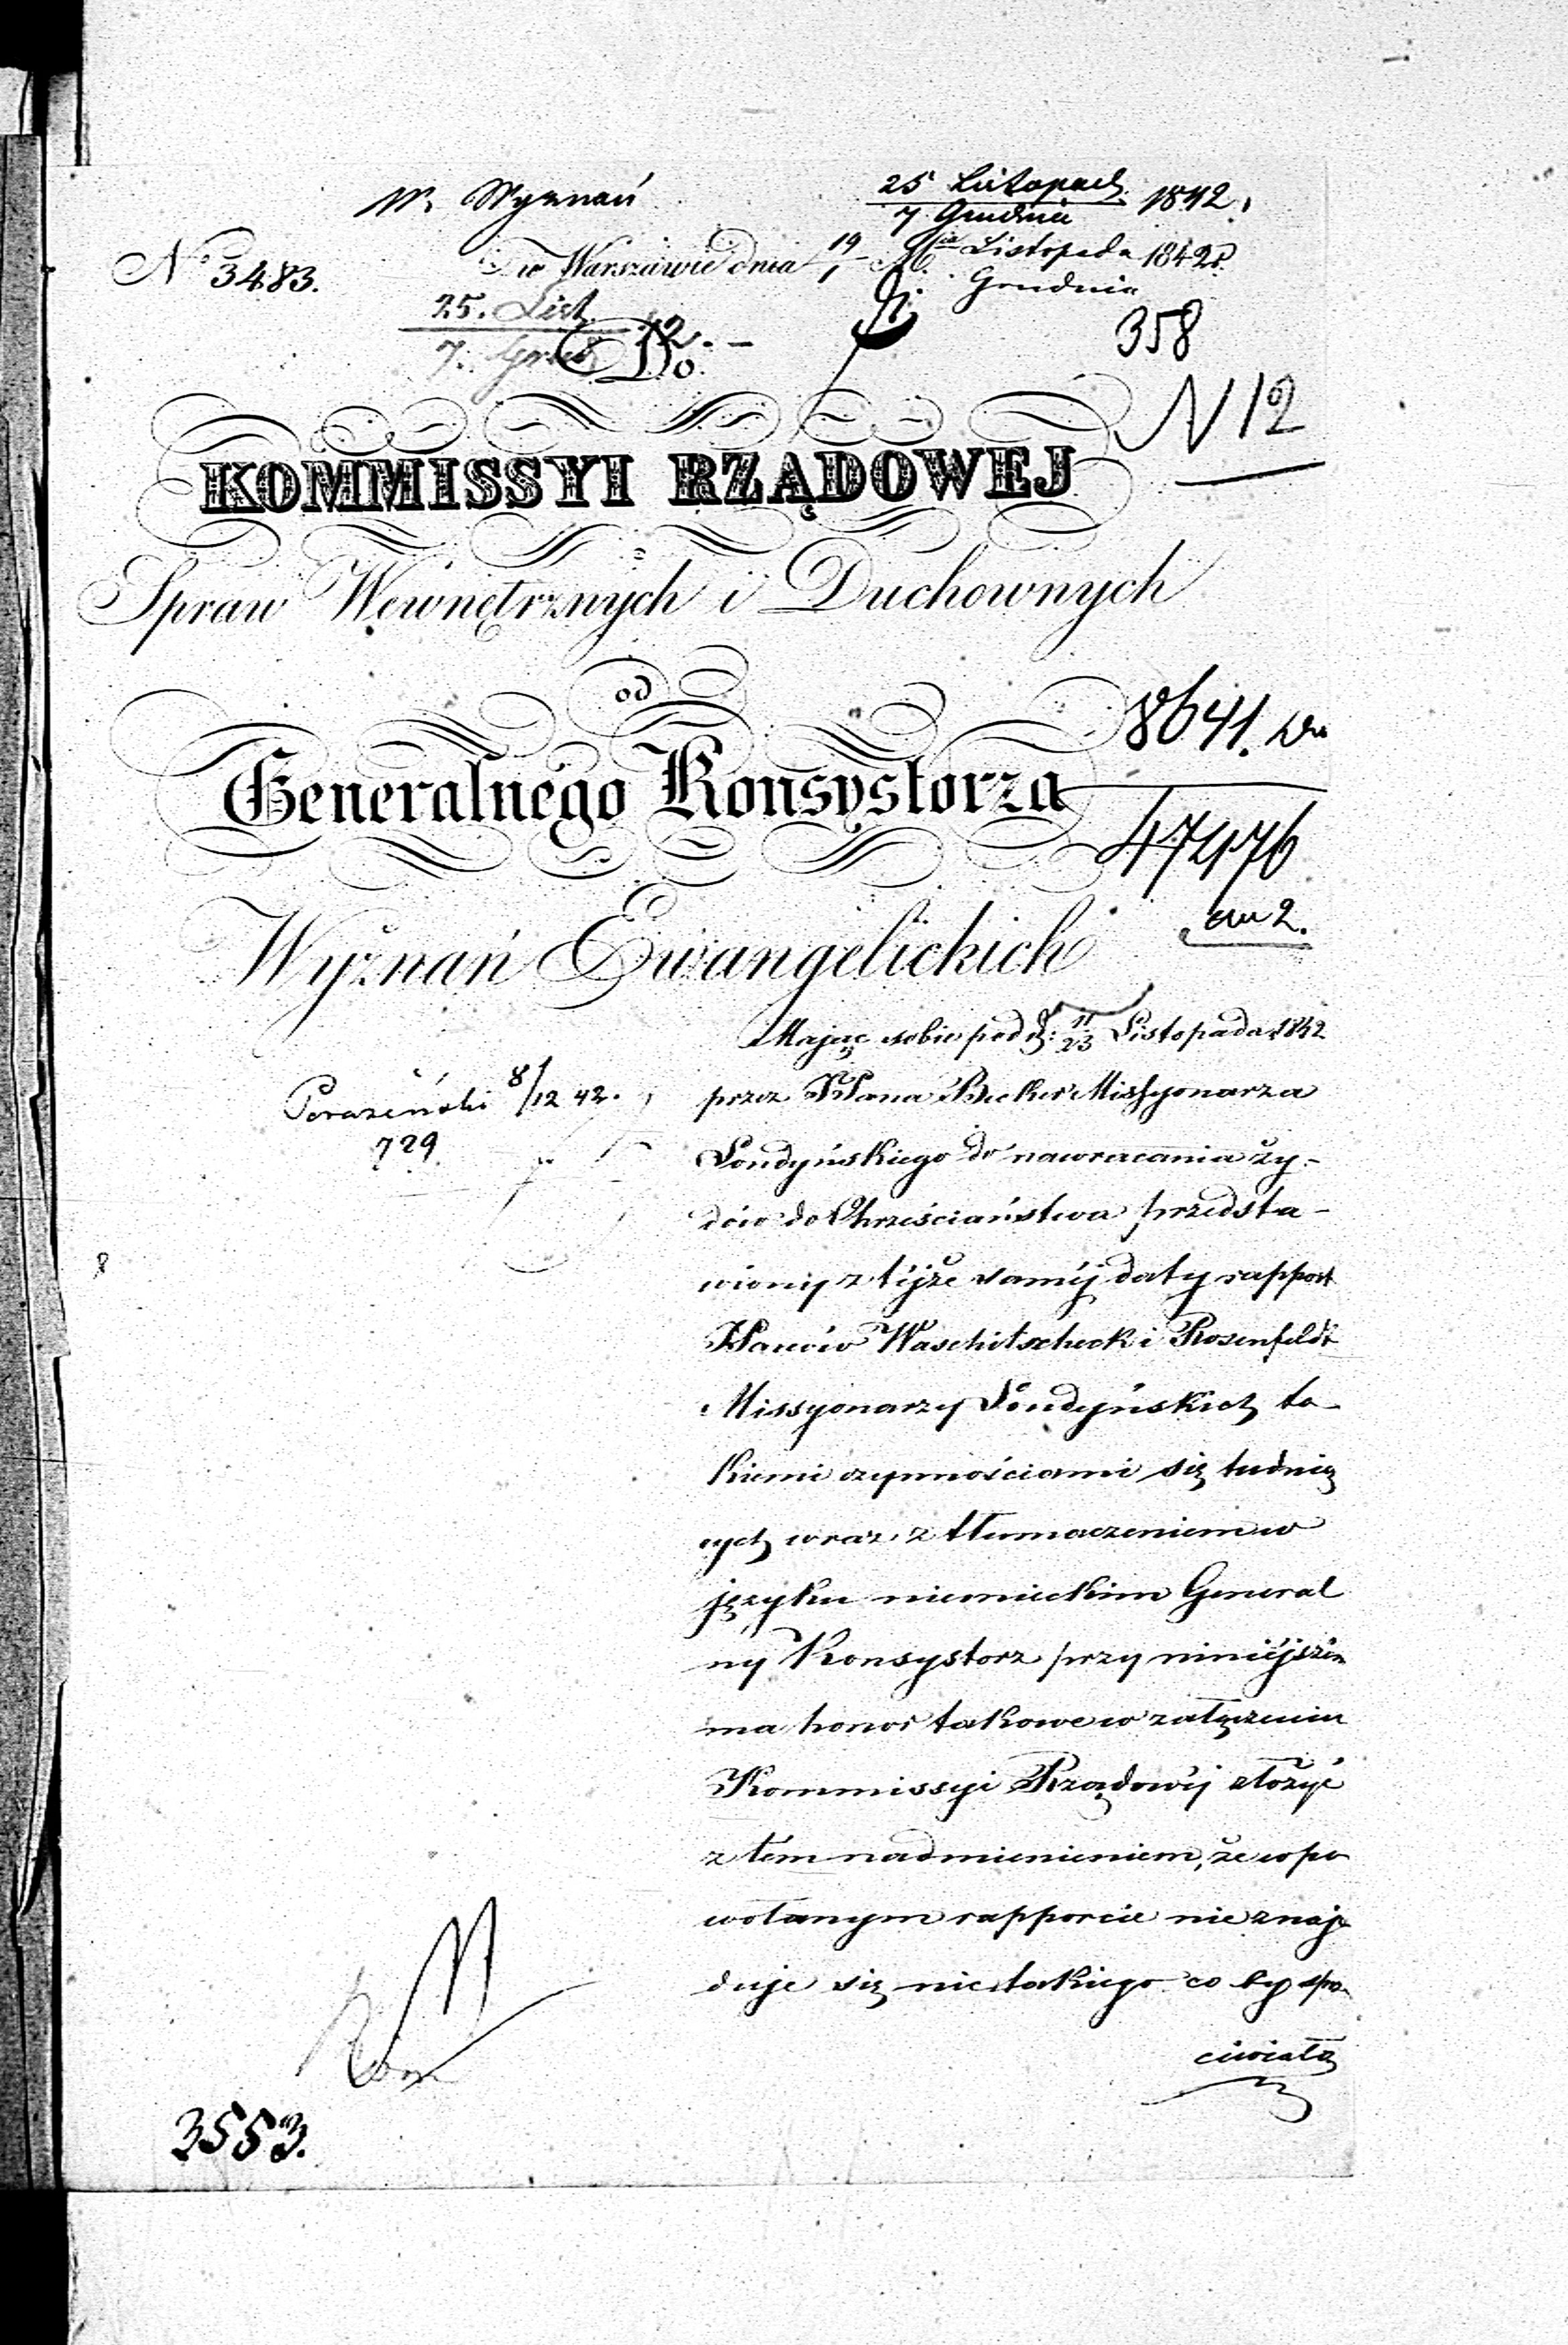 W. Wyznań
25 Listopad. 1842.
7 Grudnia
N° 3483.
w Warszawie dnia 19/1 Mca Listopada 1842 r.
Grudnia
25. List. 42. –
7. Grud
Do
358
N 12
KOMMISSYI RZĄDOWEJ
Spraw Wewnętrznych i Duchownych
od
8641.
Generalnego Konsystorza
47476
au 2.
Wyznań Ewangelickich
Mając sobie pod d: 11/23 Listopada 1842
8/12 42.
729
przez Xdana Becker Missyonarza
Londyńskiego do nawracania ży-
dów do Chrześciaństwa przedsta-
wiony z tyjże saméj daty rapport
Waschitscheck i Rosenfeldt
Missyonarzy Londyńskich ta-
kiemi czynnościami się trudnią
cych wraz z tłumaczeniem w
języku niemieckim General
ny Konsystorz przy niniéjszém
ma honor takowe w załączeniu
Kommissyi Rządowéj złożyć
z tém nadmienieniem, że w po
wołanym rapporcie nie znaj
duje się nic takiego co by spo-
ciwiało
3553.